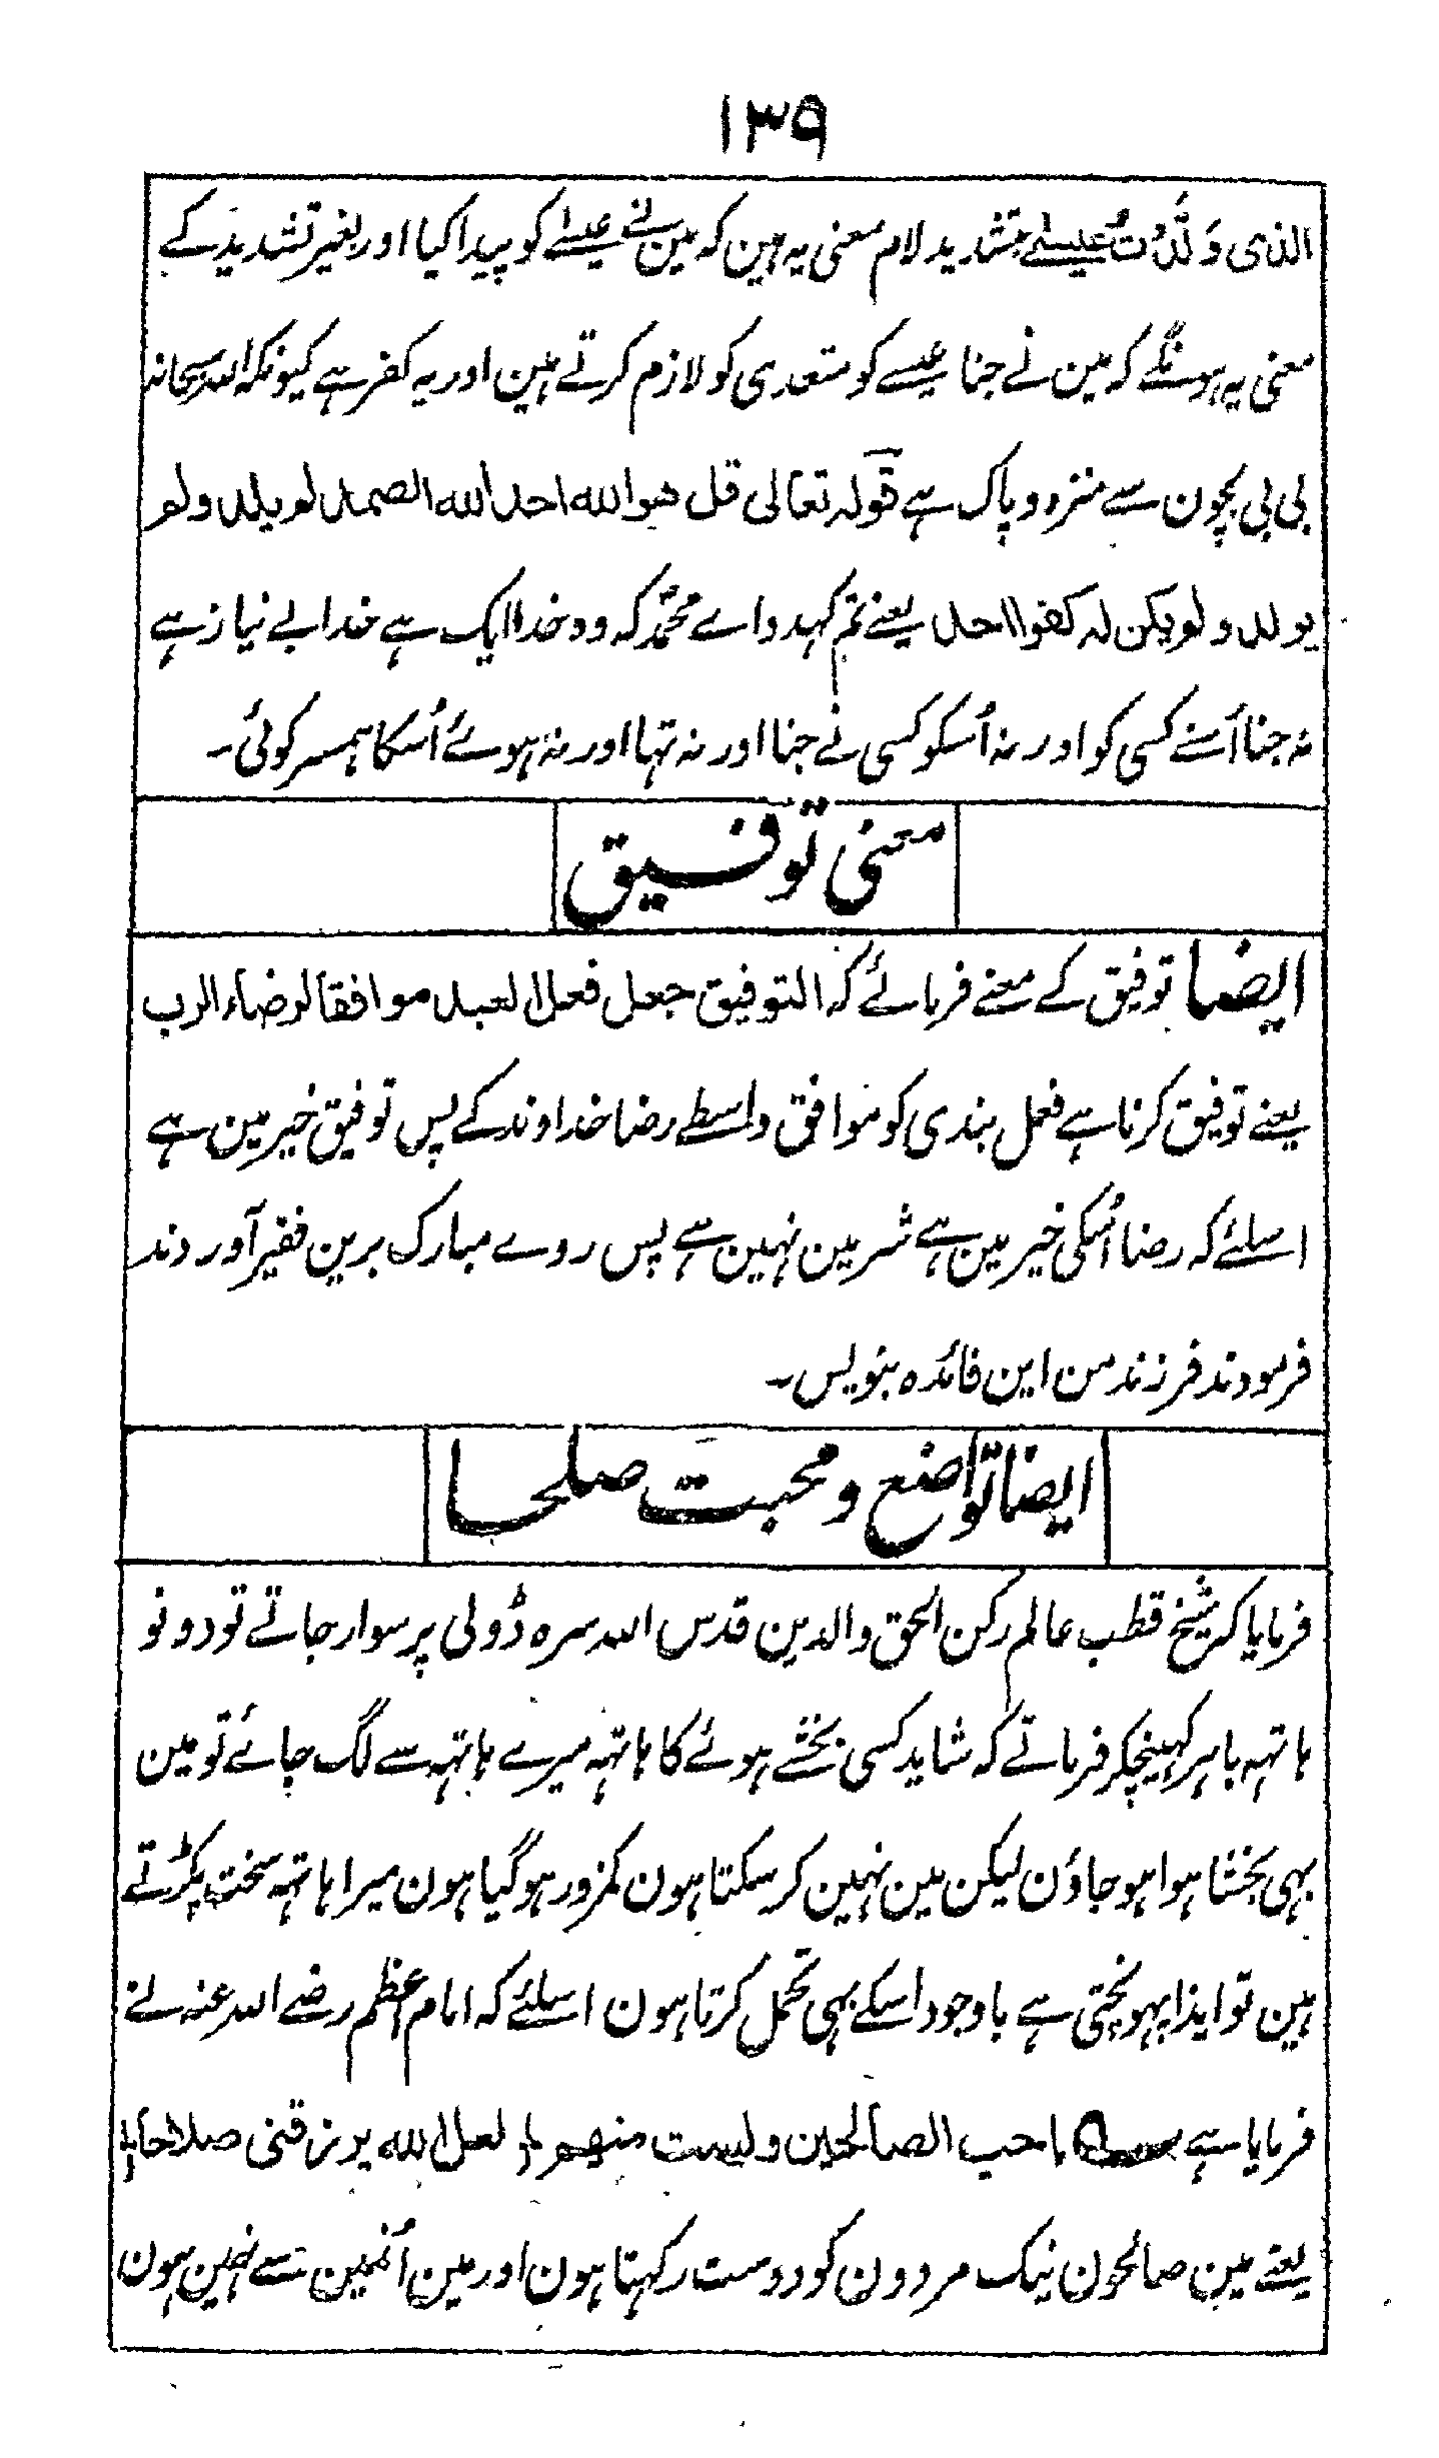 ۱۳۹
الذی وَلَّدْتُ عیسےٰ بتشدید لام معنی یہ ہین کہ مین نے عیسےٰ کو پیدا کیا اور بغیر تشدید کے
معنی یہ ہونگے کہ مین نے جنا عیسے کو متعدی کو لازم کرتے ہین اور یہ کفر ہے کیونکہ اللہ سبحانہ
بی بی بچون سے منزہ و پاک ہے قولہ تعالی قل هو الله احد الله الصمد لم یلد ولم
یولد ولم یکن لہ کفوا احد یعنے تم کہدو اے محمدؐ کہ وہ خدا ایک ہے خدا بے نیاز ہے
نہ جنا اُسنے کسی کو اور نہ اُسکو کسی نے جنا اور نہ تہا اور نہ ہوئے اُسکا ہمسر کوئی۔
معنی توفیق
ایضا توفیق کے معنے فرمائے کہ التوفیق جعل فعل العبد موافقا لرضاء الرب
یعنے توفیق کرنا ہے فعل بندی کو موافق واسطے رضا خداوند کے پس توفیق خیر مین ہے
اسلئے کہ رضا اُسکی خیر مین ہے شر مین نہین ہے پس روے مبارک برین فقیر آوردند
فرمودند فرزند من این فائدہ بنویس۔
ایضا تواضع و محبت صلحا
فرمایا کہ شیخ قطب عالم رکن الحق والدین قدس اللہ سرہ ڈولی پر سوار جاتے تو دونو
ہاتہہ باہر کہینچکر فرماتے کہ شاید کسی بخشے ہوئے کا ہاتہہ میرے ہاتہہ سے لگ جائے تو مین
بہی بخشا ہوا ہو جاؤن لیکن مین نہین کر سکتا ہون کمزور ہو گیا ہون میرا ہاتہہ سخت پکڑتے
ہین تو ایذا پہونچتی ہے باوجود اسکے بہی تحمل کرتا ہون اسلئے کہ امام اعظم رضے اللہ عنہ نے
فرمایا ہے احب الصالحین ولست منهم لعل الله یرزقنی صلاحا
یعنے مین صالحون نیک مردون کو دوست رکہتا ہون اور مین اُنمین سے نہین ہون